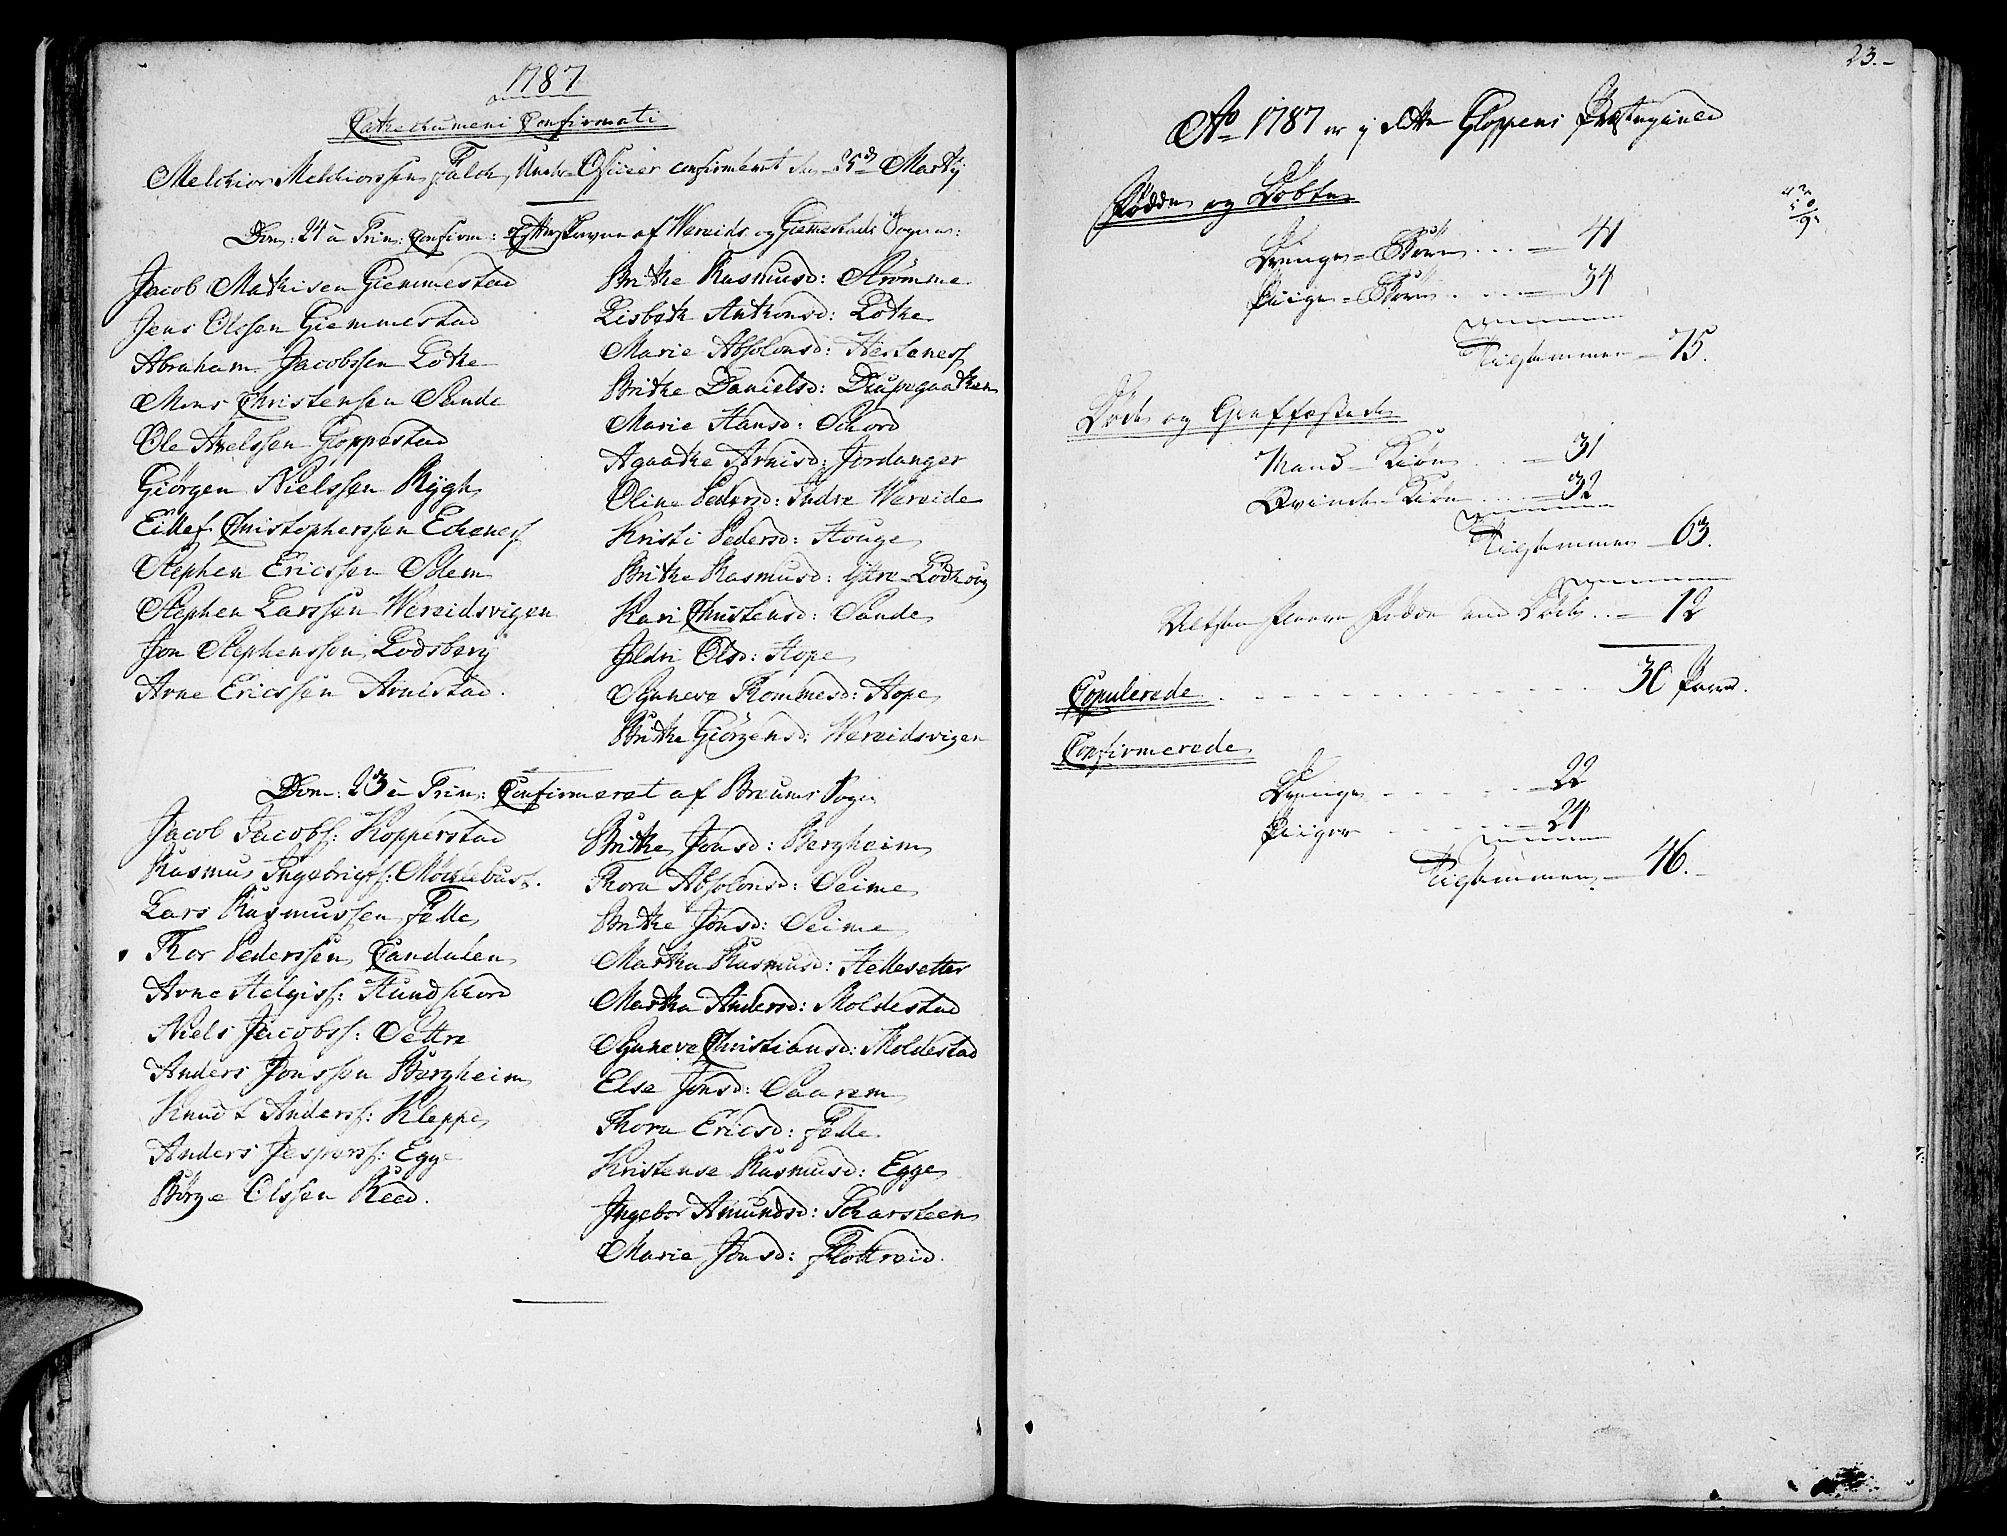 1787
Catechumeni Confirmati
Melchior Melchiorssen Falch, Under-Officier confirmeret den 25d Martij
Dom: 24 à Trin: Confirm: af Wereids og Giemmestads Sogner:
Jacob Mathisen Giemmestad
Jens Olssen Giemmestad
Abraham Jacobssen Lothe
Mons Christensen Sande
Ole Axelssen Gloppestad
Giörgen Nielssen Rygh
Eillef Christopherssen Echenes
Stephen Ericssen Solem
Stephen Larssen Wereidsvigen
Jon Stephenssen Lodsberg
Arne Ericssen Arnestad.
Brithe Rasmusd: Strömme
Lisbeth Anthonsd: Lothe
Marie Absolonsd: Hestenes
Brithe Danielsd: Diupegaathen
Marie Hansd: Schord
Agaathe Arnisd: Jordanger
Oline Pedersd: Indre Wereide
Kristi Pedersd: Houge
Brithe Rasmusd: Ytre-Lödhoug
Kari Christensd: Sande
Jldri Olsd: Hope
Syneve Rommesd: Hope
Brithe Giörgensd: Wereidsvigen
Dom: 23 à Trin: Confirmeret af Breums Sogn
Jacob Jacobs: Kopperstad
Rasmus Ingebrigs: Möchlebust.
Lars Rasmussen Felle
Thor Pederssen Sandalen
Arne Helgis: Hundschord
Niels Jacobs: Settre
Anders Jonssen Bergheim
Knud Anders: Kleppe
Anders Jespers: Egge
Börge Olssen Reed.
Brithe Jonsd: Bergheim
Thora Absolonsd: Seime
Brithe Jonsd: Seime
Martha Rasmusd: Hellesetter
Martha Andersd: Moldestad
Syneve Christiansd: Moldestad
Else Jonsd: Saarem
Thora Ericsd: Felle
Kristense Rasmusd: Egge
Ingebor Amundsd: Scharsteen
Marie Jonsd: Flottreid.
23.-
Ao 1787 er i dette Gloppens Præstegield
Födde og Döbte
Drenge-Börn .... 41
Piige-Börn .... 34
Tilsammen 75.
Döde og Graffæstede
Mand-Kiön ... 31
Qvinde-Kiön .... 32
Tilsammen 63.
Altsaa fleere födde end Döde .. 12
Copulerede 30 Parr.
Confirmerede
Drenge 22
Piiger 24
Tilsammen 46.